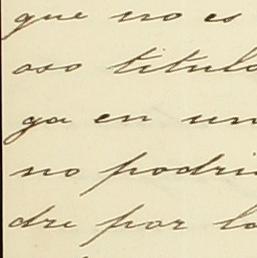 que no es
oso titulo
ga en un
no podri
dre por lo